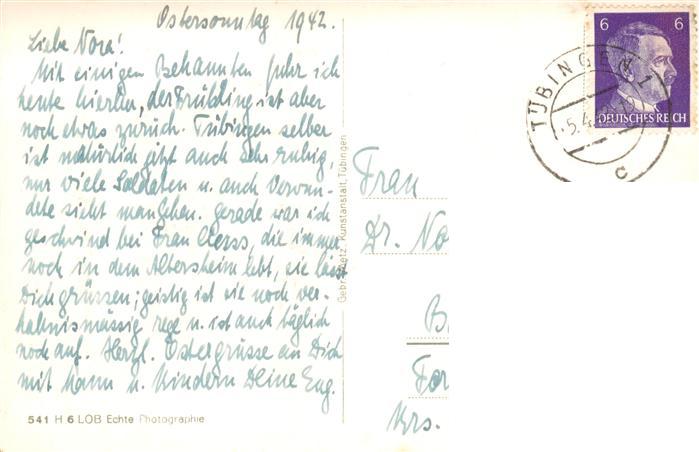 Ostersonntag 1942.
Liebe Nora!
Mit einigen Bekannten fuhr ich
heute hierhin, der Frühling ist aber
noch etwas zurück. Tübingen selber
ist natürlich jetzt auch sehr ruhig,
nur viele Soldaten u. auch Verwun-
dete sieht man gehen. gerade war ich
geschwind bei Frau, die immer
noch in dem Altersheim lebt, sie lässt
Dich grüssen; geistig ist sie noch ver-
hältnismässig rege u. ist auch täglich
noch auf. Herzl. Ostergrüsse an Dich
mit Mann u. Kindern Deine Eug.
541 H 6 LOB Echte Photographie
Gebr. Metz, Kunstanstalt, Tübingen
6 6
DEUTSCHES REICH
TÜBINGEN 1
5.4.
c
Frau
Dr. No
B
Krs.